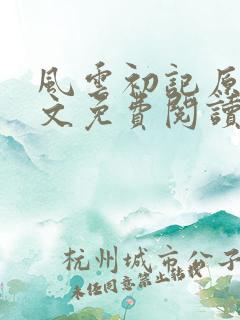 風雲初記原
文免費閱讀
杭州城市公子
未经同意禁止转载